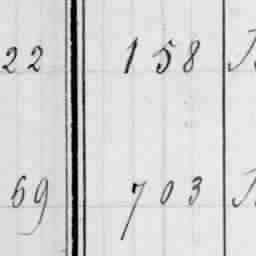 22 158
69 703